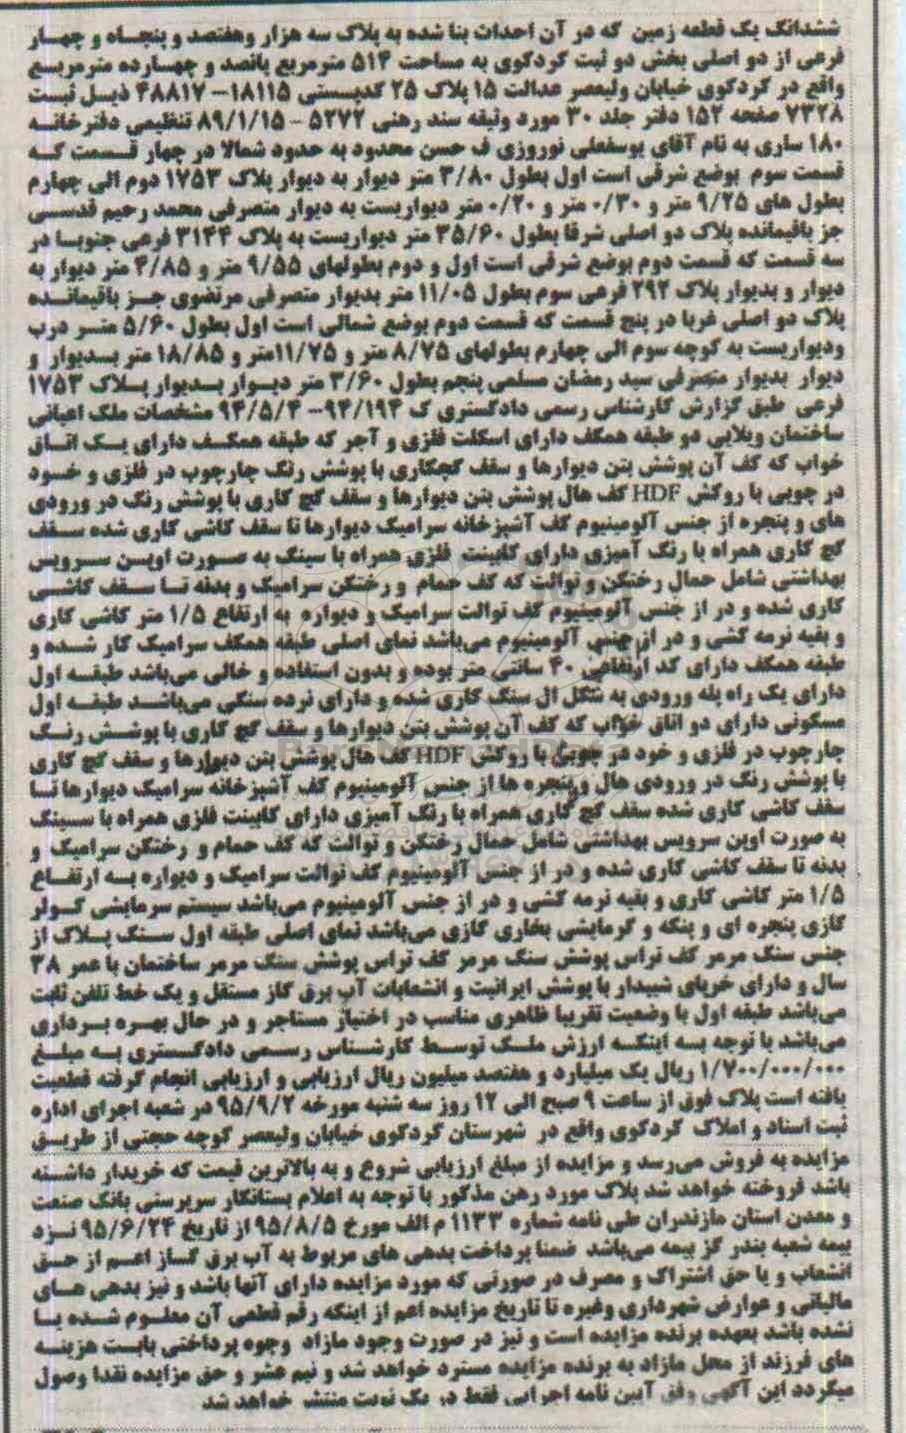 ششدانگ یک قطعه زمین که در آن احداث بنا شده به پلاک سه هزار وهفتصد و پنجاه و چهار
فرعی از دو اصلی بخش دو ثبت کردکوی به مساحت ۵۱۴ مترمربع پانصد و چهارده مترمربع
واقع در کردکوی خیابان ولیعصر عدالت ۱۵ پلاک ۲۵ کدپستی ۱۸۱۱۵-۴۸۸۱۷ ذیل ثبت
۷۳۲۸ صفحه ۱۵۲ دفتر جلد ۳۰ مورد وثیقه سند رهنی ۵۲۷۲ - ۸۹/۱/۱۵ تنظیمی دفترخانه
۱۸۰ ساری به نام آقای یوسفعلی نوروزی ف حسن محدود به حدود شمالا در چهار قسمت که
قسمت سوم بوضع شرقی است اول بطول ۳/۸۰ متر دیوار به دیوار پلاک ۱۷۵۳ دوم الی چهارم
بطول های ۹/۲۵ متر و ۰/۳۰ متر و ۰/۲۰ متر دیواریست به دیوار متصرفی محمد رحیم قدسی
جز باقیمانده پلاک دو اصلی شرقا بطول ۳۵/۶۰ متر دیواریست به پلاک ۳۱۴۴ فرعی جنوبا در
سه قسمت که قسمت دوم بوضع شرقی است اول و دوم بطولهای ۹/۵۵ متر و ۴/۸۵ متر دیوار به
دیوار و بدیوار پلاک ۲۹۲ فرعی سوم بطول ۱۱/۰۵ متر بدیوار متصرفی مرتضوی جز باقیمانده
پلاک دو اصلی غربا در پنج قسمت که قسمت دوم بوضع شمالی است اول بطول ۵/۶۰ متر درب
ودیواریست به کوچه سوم الی چهارم بطولهای ۸/۷۵ متر و ۱۱/۷۵متر و ۱۸/۸۵ متر بدیوار و
دیوار بدیوار متصرفی سید رمضان مسلمی پنجم بطول ۳/۶۰ متر دیوار بدیوار پلاک ۱۷۵۳
فرعی طبق گزارش کارشناس رسمی دادگستری ک ۹۴/۱۹۴- ۹۴/۵/۴ مشخصات ملک اعیانی
ساختمان ویلایی دو طبقه همکف دارای اسکلت فلزی و آجر که طبقه همکف دارای یک اتاق
خواب که کف آن پوشش بتن دیوارها و سقف گچکاری با پوشش رنگ چارچوب در فلزی و خود
در چوبی با روکش HDF کف هال پوشش بتن دیوارها و سقف گچ کاری با پوشش رنگ در ورودی
های و پنجره از جنس آلومینیوم کف آشپزخانه سرامیک دیوارها تا سقف کاشی کاری شده سقف
گچ کاری همراه با رنگ آمیزی دارای کابینت فلزی همراه با سینک به صورت اوپن سرویس
بهداشتی شامل حمال رختکن و توالت که کف حمام و رختکن سرامیک و بدنه تا سقف کاشی
کاری شده و در از جنس آلومینیوم کف توالت سرامیک و دیواره به ارتفاع ۱/۵ متر کاشی کاری
و بقیه نرمه کشی و در از جنس آلومینیوم می‌باشد نمای اصلی طبقه همکف سرامیک کار شده و
طبقه همکف دارای کد ارتفاعی ۴۰ سانتی متر بوده و بدون استفاده و خالی می‌باشد طبقه اول
دارای یک راه پله ورودی به شکل ال سنگ کاری شده و دارای نرده سنگی می‌باشد طبقه اول
مسکونی دارای دو اتاق خواب که کف آن پوشش بتن دیوارها و سقف گچ کاری با پوشش رنگ
چارچوب در فلزی و خود در چوبی با روکش HDF کف هال پوشش بتن دیوارها و سقف گچ کاری
با پوشش رنگ در ورودی هال و پنجره ها از جنس آلومینیوم کف آشپزخانه سرامیک دیوارها تا
سقف کاشی کاری شده سقف گچ کاری همراه با رنگ آمیزی دارای کابینت فلزی همراه با سینک
به صورت اوپن سرویس بهداشتی شامل حمال رختکن و توالت که کف حمام و رختکن سرامیک و
بدنه تا سقف کاشی کاری شده و در از جنس آلومینیوم کف توالت سرامیک و دیواره به ارتفاع
۱/۵ متر کاشی کاری و بقیه نرمه کشی و در از جنس آلومینیوم می‌باشد سیستم سرمایشی کولر
گازی پنجره ای و پنکه و گرمایشی بخاری گازی می‌باشد نمای اصلی طبقه اول سنگ پلاک از
جنس سنگ مرمر کف تراس پوشش سنگ مرمر کف تراس پوشش سنگ مرمر ساختمان با عمر ۳۸
سال و دارای خرپای شیبدار با پوشش ایرانیت و انشعابات آب برق گاز مستقل و یک خط تلفن ثابت
می‌باشد طبقه اول با وضعیت تقریبا ظاهری مناسب در اختیار مستاجر و در حال بهره برداری
می‌باشد با توجه به اینکه ارزش ملک توسط کارشناس رسمی دادگستری به مبلغ
۱/۷۰۰/۰۰۰/۰۰۰ ریال یک میلیارد و هفتصد میلیون ریال ارزیابی و ارزیابی انجام گرفته قطعیت
یافته است پلاک فوق از ساعت ۹ صبح الی ۱۲ روز سه شنبه مورخه ۹۵/۹/۲ در شعبه اجرای اداره
ثبت اسناد و املاک کردکوی واقع در شهرستان کردکوی خیابان ولیعصر کوچه حجتی از طریق
مزایده به فروش می‌رسد و مزایده از مبلغ ارزیابی شروع و به بالاترین قیمت که خریدار داشته
باشد فروخته خواهد شد پلاک مورد رهن مذکور با توجه به اعلام بستانکار سرپرستی بانک صنعت
و معدن استان مازندران طی نامه شماره ۱۱۳۳ م الف مورخ ۹۵/۸/۵ از تاریخ ۹۵/۶/۲۴ نزد
بیمه شعبه بندر گز بیمه می‌باشد ضمنا پرداخت بدهی های مربوط به آب برق گاز اعم از حق
انشعاب و یا حق اشتراک و مصرف در صورتی که مورد مزایده دارای آنها باشد و نیز بدهی های
مالیاتی و عوارض شهرداری وغیره تا تاریخ مزایده اعم از اینکه رقم قطعی آن معلوم شده یا
نشده باشد بعهده برنده مزایده است و نیز در صورت وجود مازاد وجوه پرداختی بابت هزینه
های فرزند از محل مازاد به برنده مزایده مسترد خواهد شد و نیم عشر و حق مزایده نقدا وصول
میگردد این آگهی وفق آیین نامه اجرایی فقط در یک نوبت منتشر خواهد شد